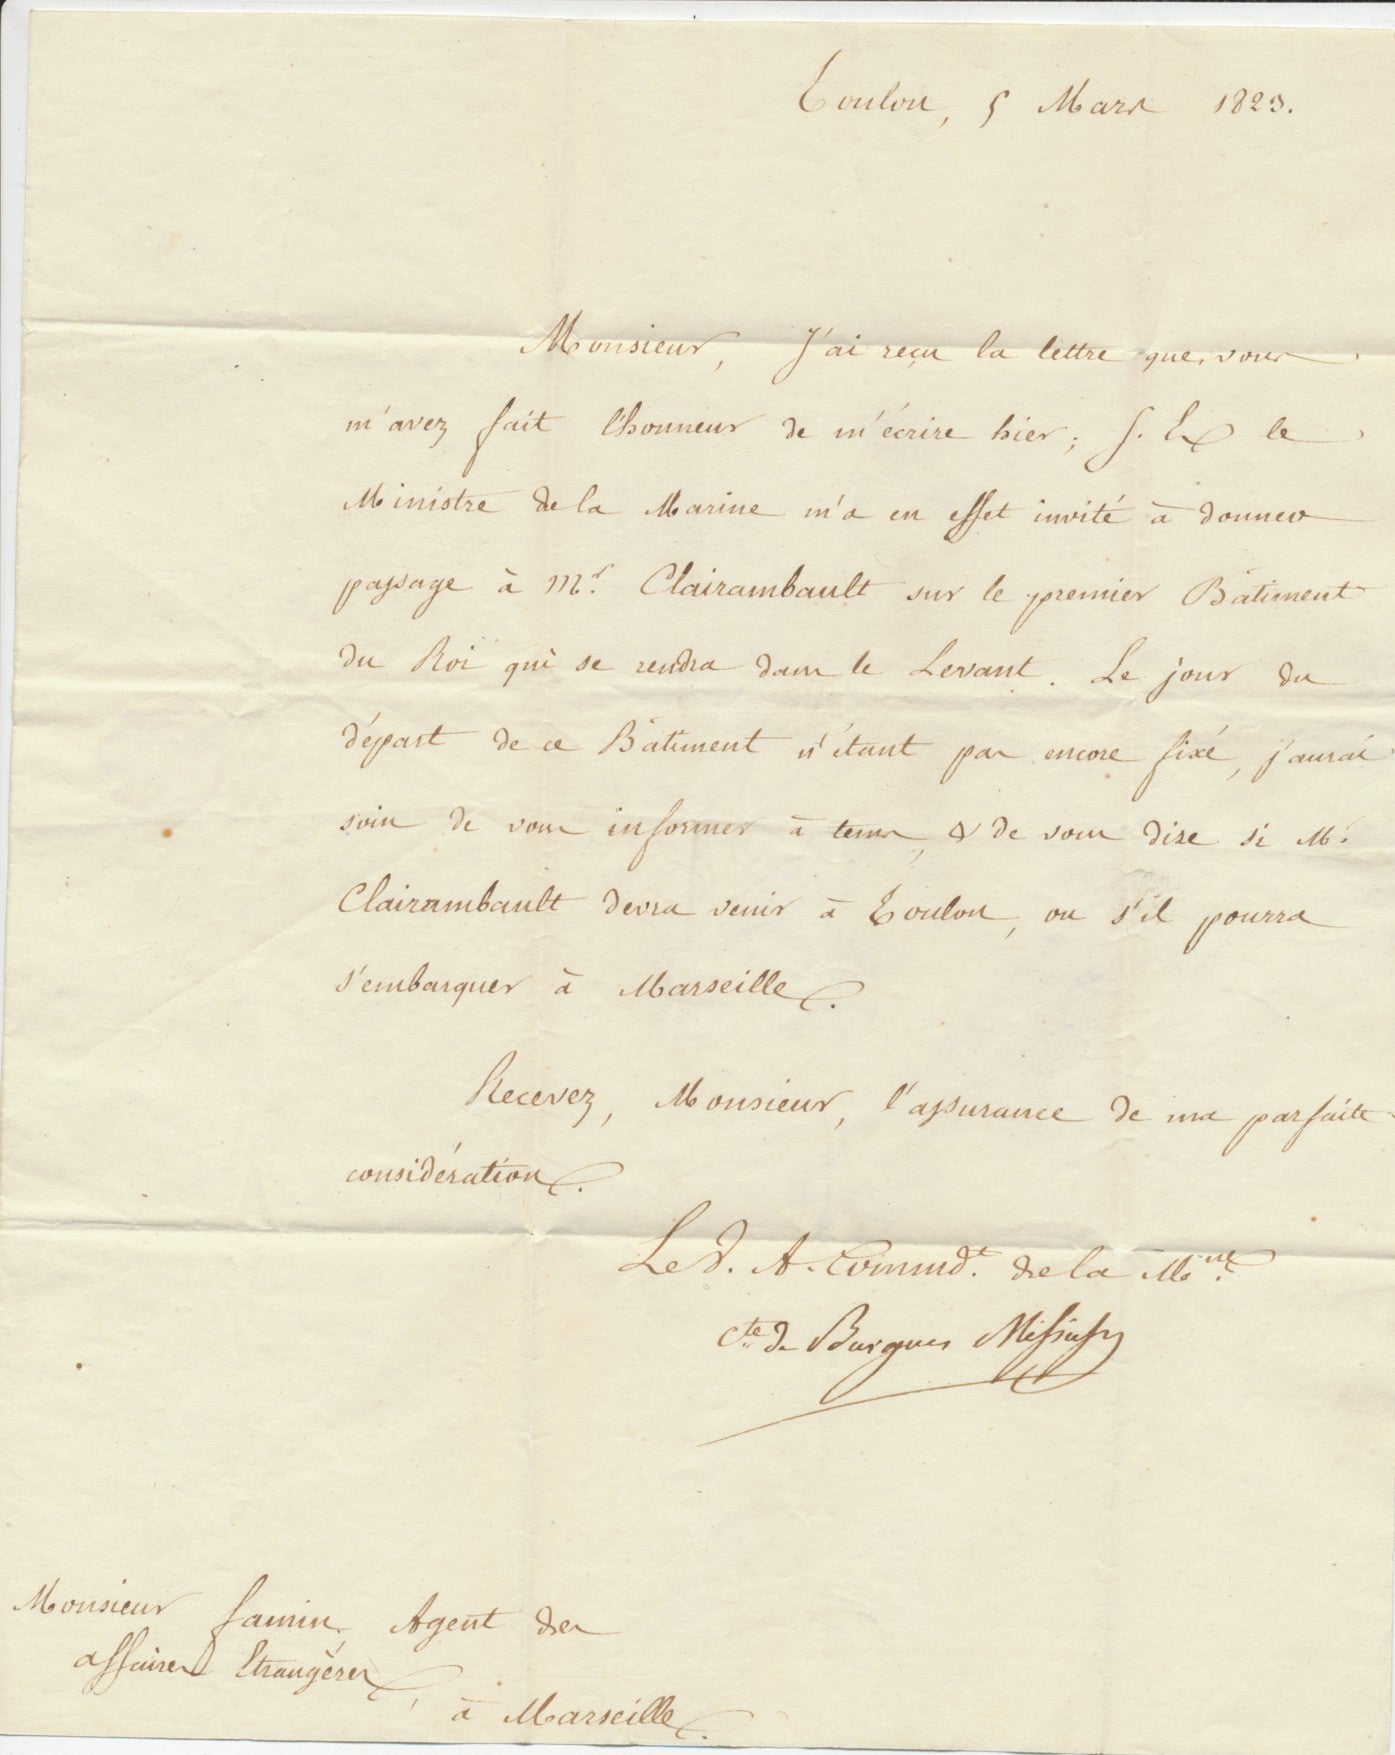 Toulon, 5 Mars 1823.
Monsieur, J'ai reçu la lettre que vous
m'avez fait l'honneur de m'écrire hier; S. Ex le
Ministre de la Marine m'a en effet invité à donner
passage à Mr. Clairambault sur le premier Bâtiment
du Roi qui se rendra dans le Levant. Le jour du
départ de ce Bâtiment n'étant pas encore fixé, j'aurai
soin de vous informer à tems, & de vous dire si Mr.
Clairambault devra venir à Toulon, ou s'il pourra
s'embarquer à Marseille.
Recevez, Monsieur, l'assurance de ma parfaite
considération.
Le V. A. Commdt. de la Mne.
Cte de Burgues Missiessy
Monsieur famin, Agent des
affaires Etrangères,
à Marseille.